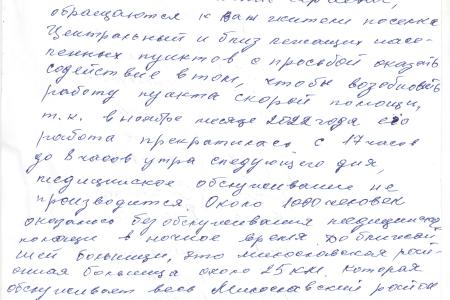 обращаются к Вам жители поселка
Центральный и близ лежащих насе-
ленных пунктов с просьбой оказать
содействие в том, чтобы возобновить
работу пункта скорой помощи,
т.к. в ноябре месяце 2022 года его
работа прекратилась с 17 часов
до 8 часов утра следующего дня,
медицинское обслуживание не
производится. Около 1000 человек
оказались без обслуживания медицинской
помощи в ночное время. До ближай-
шей больницы, это Милославская рай-
онная больница около 25 км. которая
обслуживает весь Милославский район